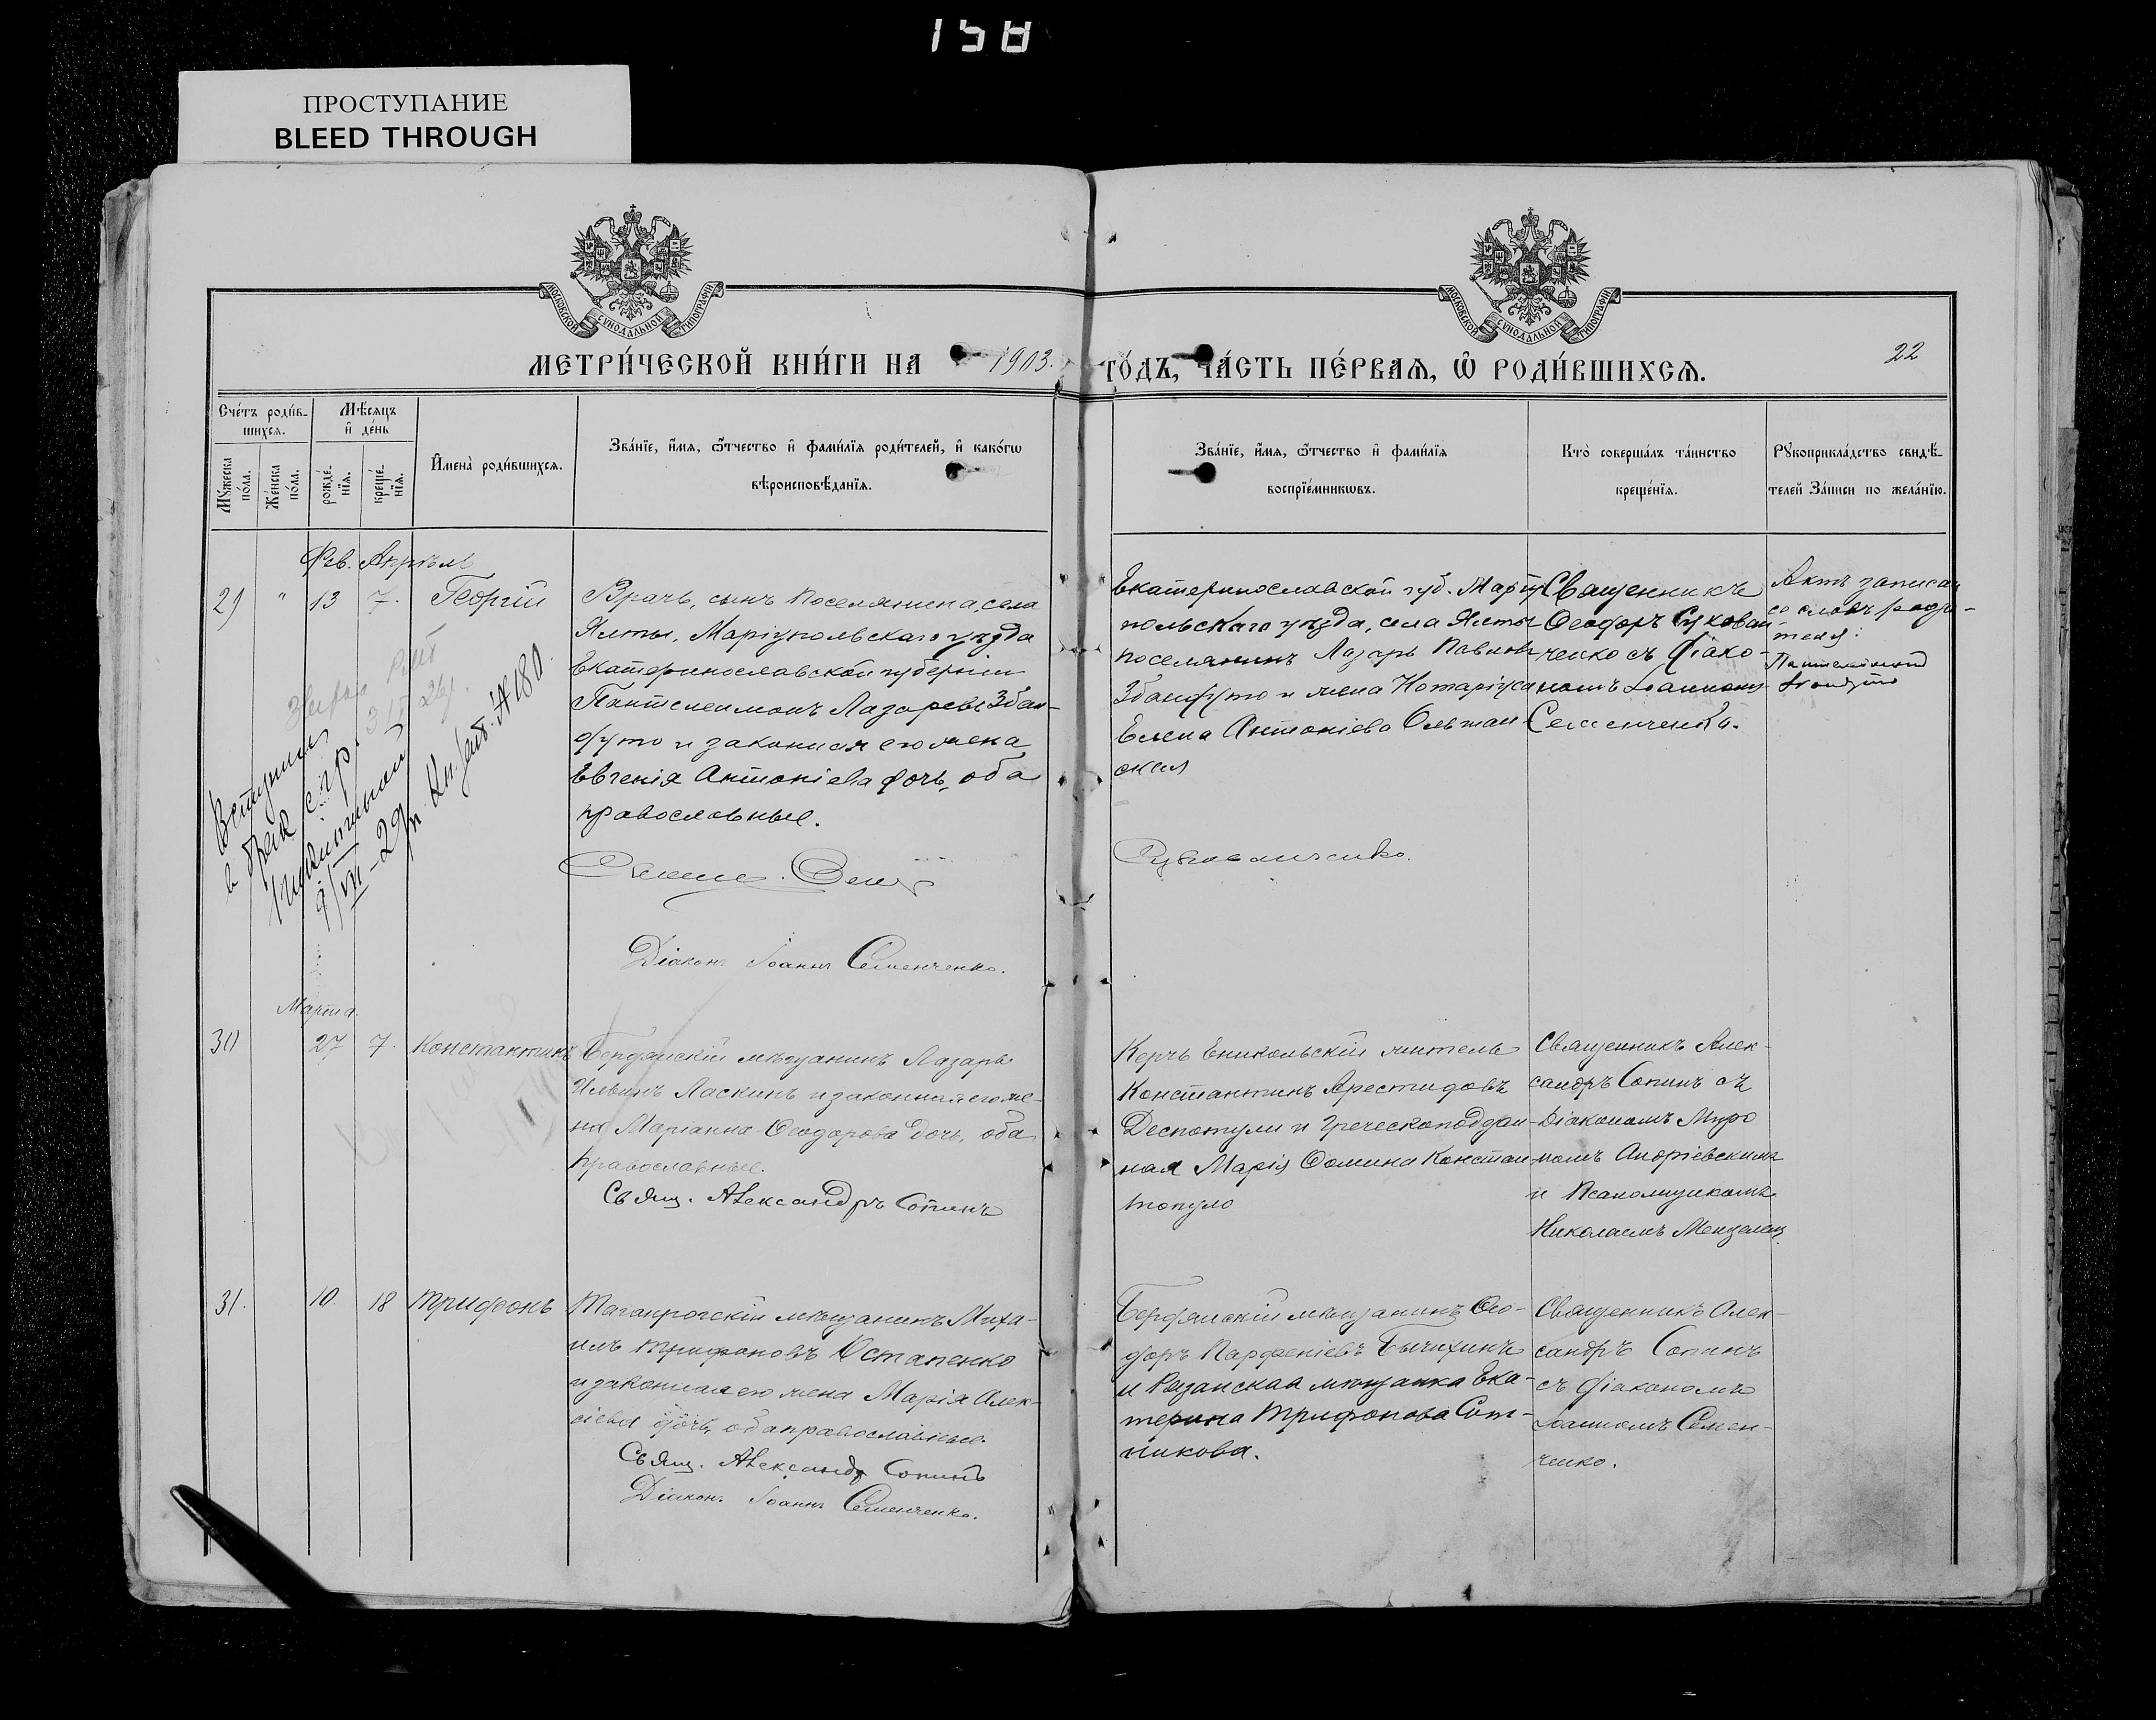 158
ПРОСТУПАНИЕ
BLEED THROUGH
МОСКОВСКОЙ СѴНОДАЛЬНОЙ ТИПОГРАФІИ
МОСКОВСКОЙ СѴНОДАЛЬНОЙ ТИПОГРАФІИ
МЕТРИ́ЧЕСКОЙ КНИ́ГИ НА 1903. ГО́ДЪ, ЧА́СТЬ ПЕ́РВАѦ, Ѡ҆ РОДИ́ВШИХСѦ.
22
Сче́тъ роди́в-
шихсѧ.
Мѣ́сѧцъ
и҆ де́нь
Мꙋжеска
по́ла.
Же́нска
по́ла.
рожде́-
нїѧ.
креще́-
нїѧ.
И҆мена̀ роди́вшихсѧ.
Зва́нїе, и҆́мѧ, ѻ҆́тчество и҆ фами́лїѧ роди́телей, и҆ како́гѡ
вѣроисповѣ́данїѧ.
Зва́нїе, и҆́мѧ, ѻ҆́тчество и҆ фами́лїѧ
воспрїе́мникѡвъ.
Кто̀ соверша́лъ та́инство
креще́нїѧ.
Рꙋкоприкла́дство свидѣ́-
телей за́писи по жела́нїю.
Фев. Апрѣль
29 " 13 7. Георгій
Врачъ, сынъ поселянина, села
Ялты, Маріупольскаго уѣзда
Екатеринославской губерніи
Пантелеимонъ Лазаревъ Збан-
дуто и законная его жена
Евгенія Антоніева дочь, оба
православные.
Діаконъ Іоаннъ Семенченко.
Екатеринославской губ. Маріу-
польскаго уѣзда, села Ялты
поселянинъ Лазарь Павловъ
Збандуто и жена Нотаріуса
Елена Антоніева Ольшан-
ская
Суковаиченко.
Священникъ
Ѳеодоръ Суковаи-
ченко съ діако-
номъ Іоанномъ
Семенченко.
Актъ записан
со словъ роди-
теля:
Вступил
в брак с гр.
9/VII-29 г. Кн. № 180.
Марта
30 27 7. Константинъ
Бердянскій мѣщанинъ Лазарь
Ильинъ Ласкинъ и законная его же-
на Маріанна Ѳеодорова дочь, оба
православные.
Свящ. Александръ Сопинъ
Керчь Еникольскій житель
Константинъ Арестидовъ
Деспотули и греческоподдан-
ная Марія Ѳомина Констан-
топуло
Священникъ Алек-
сандръ Сопинъ съ
Діакономъ Миро
номъ Андріевскимъ
и Псаломщикомъ
Николаемъ
31. 10. 18 Трифонъ
Таганрогскій мѣщанинъ Миха-
илъ Трифоновъ Остапенко
и законная его жена Марія Алек-
сіева дочь, оба православные.
Свящ. Александръ Сопинъ
Діаконъ Іоаннъ Семенченко.
Бердянскій мѣщанинъ Ѳео-
доръ Парфеніевъ Бычихинъ
и Рязанская мѣщанка Ека-
терина Трифонова Сот-
никова.
Священникъ Алек-
сандръ Сопинъ
съ діакономъ
Іоанномъ Семен-
ченко.